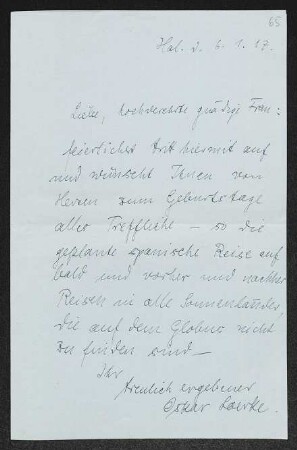 65
Liebe, hochverehrte gnädige Frau:
feierlichst tritt hiermit auf
und wünscht Ihnen von
Herzen zum Geburtstage
alles Treffliche — so die
geplante spanische Reise auf
bald und vorher und nachher
Reisen in alle Sonnenländer,
die auf dem Globus nicht
zu finden sind —
Ihr
treulich ergebener
Oskar Loerke.